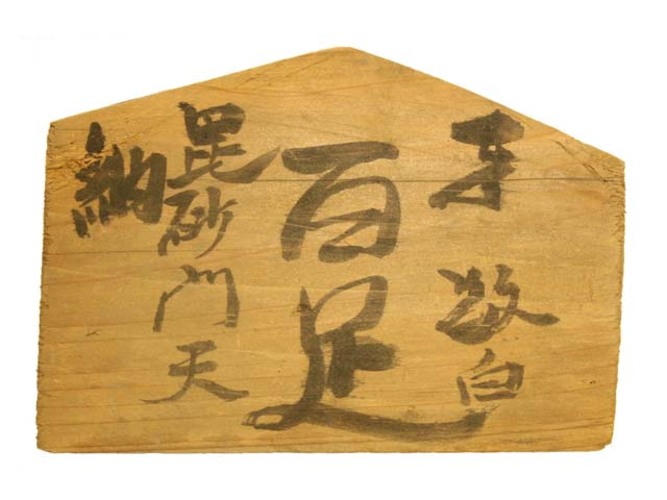 奉 敬白
百足
毘砂門天
納